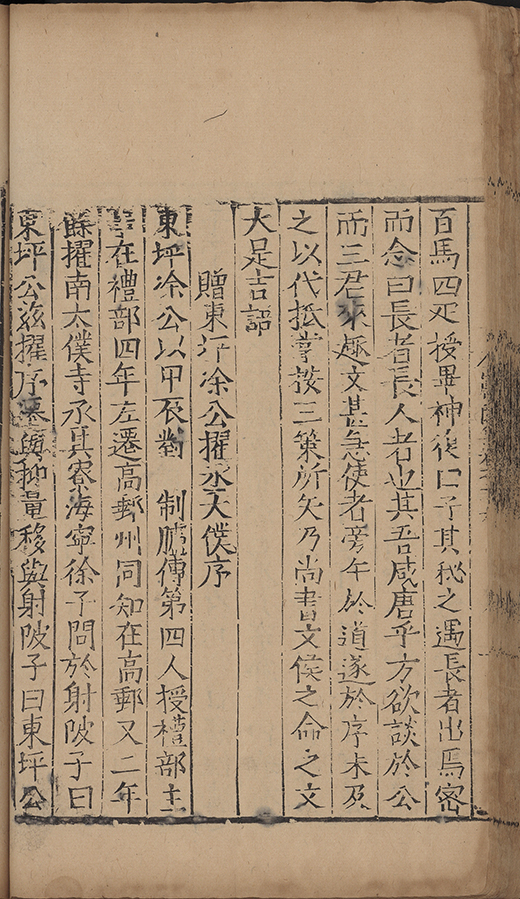 百馬四疋授畢神復曰予其秘之遇長者出焉密
而念曰長者長人者也其吾咸唐乎方欲談於公
而三君來趣文甚急使者旁午於道遂於序未及
之以代抵掌按三策所矢乃尚書文侯之命之文
大足吉語
贈東坪凃公擢丞太僕序
東坪凃公以甲辰對 制臚傳第四人授禮部主
事在禮部四年左遷高郵州同知在高郵又二年
餘擢南太僕寺丞其寮海寧徐子問於射陂子曰
東坪公茲擢序遷與抑量移與射陂子曰東坪公